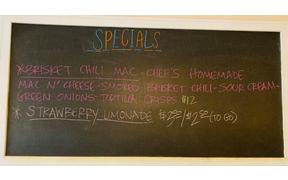 SPECIALS
*BRISKET CHILI MAC - CHEF'S HOMEMADE
MAC N' CHEESE - SMOKED BRISKET CHILI - SOUR CREAM -
GREEN ONIONS - TORTILLA CRISPS $12
* STRAWBERRY LIMONADE $2.25/$2.50 (TO GO)